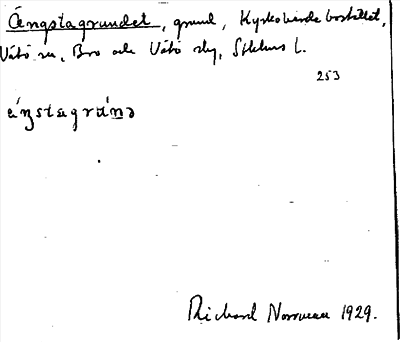 Ängstagrundet, grund, Kyrkoherdebostället,
Vätö sn, Bro och Vätö skg, Sthlms l.
253
Richard Norrman 1929.